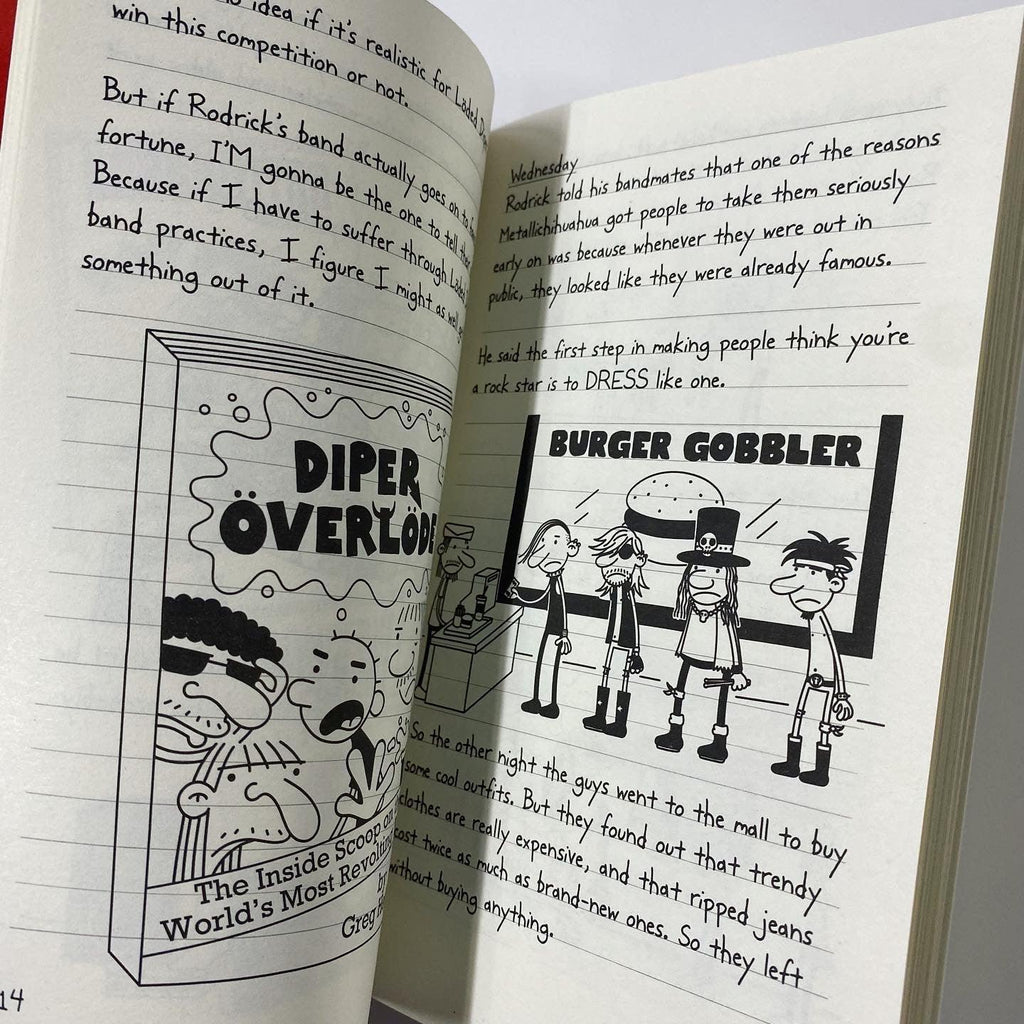 idea if it's realistic for Löded
win this competition or not.
But if Rodrick's band actually goes on to
fortune, I'M gonna be the one to tell
Because if I have to suffer through
band practices, I figure I might as well
something out of it.
DIPER
ÖVERLÖDE
The Inside Scoop on
World's Most Revolting
by
Greg
14
Wednesday
Rodrick told his bandmates that one of the reasons
Metallichihuahua got people to take them seriously
early on was because whenever they were out in
public, they looked like they were already famous.
He said the first step in making people think you're
a rock star is to DRESS like one.
BURGER GOBBLER
So the other night the guys went to the mall to buy
some cool outfits. But they found out that trendy
clothes are really expensive, and that ripped jeans
cost twice as much as brand-new ones. So they left
without buying anything.